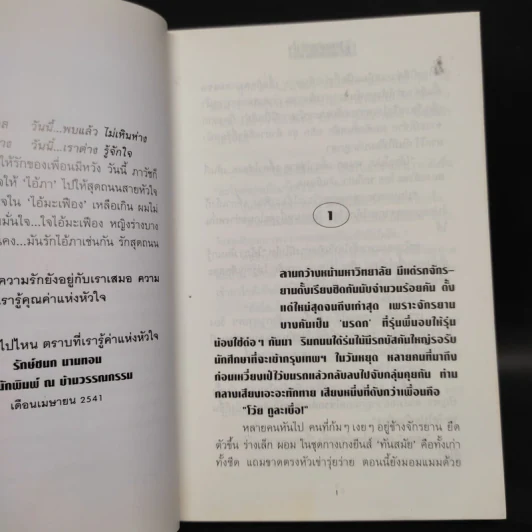 วันนี้...พบแล้ว ไม่เหินห่าง
วันนี้...เราต่าง รู้จักใจ
ให้รักของเพื่อนมีหวัง วันนี้ ภาวัชก็
ใจให้ 'ไอ้ภา' ไปให้สุดถนนสายหัวใจ
ใจใน 'ไอ้มะเฟือง' เหลือเกิน ผมไม่
มั่นใจ...ใจไอ้มะเฟือง หญิงร่างบาง
แดง...มันรักไอ้ภาเช่นกัน รักสุดถนน
ความรักยังอยู่กับเราเสมอ ความ
เรารู้คุณค่าแห่งหัวใจ
ไปไหน ตราบที่เรารู้ค่าแห่งหัวใจ
รักษ์ชนก นามทอน
นักพิมพ์ ณ บ้านวรรณกรรม
เดือนเมษายน 2541
1
ลานกว้างหน้ามหาวิทยาลัย มีแต่รถจักร-
ยานตั้งเรียงชิดกันนับจำนวนร้อยคัน ตั้ง
แต่ใหม่สุดจนถึงเก่าสุด เพราะจักรยาน
บางคันเป็น 'มรดก' ที่รุ่นพี่มอบให้รุ่น
น้องใช้ต่อๆ กันมา ริมถนนใต้ร่มไม้มีรถบัสคันใหญ่รอรับ
นักศึกษาที่จะเข้ากรุงเทพฯ ในวันหยุด หลายคนที่มาถึง
ก่อนเหวี่ยงเป้ไว้บนรถแล้วกลับลงไปจับกลุ่มคุยกัน ท่าม
กลางเสียงเอะอะทักทาย เสียงหนึ่งที่ดังกว่าเพื่อนคือ
"โว้ย กูละเบื่อ!"
หลายคนหันไป คนที่ก้มๆ เงยๆ อยู่ข้างจักรยาน ยืด
ตัวขึ้น ร่างเล็ก ผอม ในชุดกางเกงยีนส์ 'ทันสมัย' คือทั้งเก่า
ทั้งซีด แถมขาดตรงหัวเข่ารุ่งริ่ง ตอนนี้ยังมอมแมมด้วย
1